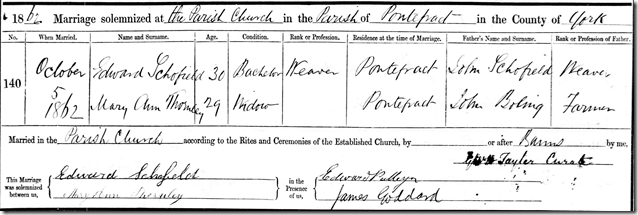 1862. Marriage solemnized at the Parish Church in the Parish of Pontefract in the County of York
No. When Married. Name and Surname. Age. Condition. Rank or Profession. Residence at the time of Marriage. Father's Name and Surname. Rank or Profession of Father.
140 October 5 1862 Edward Schofield 30 Bachelor Weaver Pontefract John Schofield Weaver
Mary Ann 29 Widow Pontefract John Boling Farmer
Married in the Parish Church according to the Rites and Ceremonies of the Established Church, by or after Banns by me,
Tayler Curate
This Marriage was solemnized between us, Edward Schofield in the Presence of us, Edward Pulleyn
James Goddard